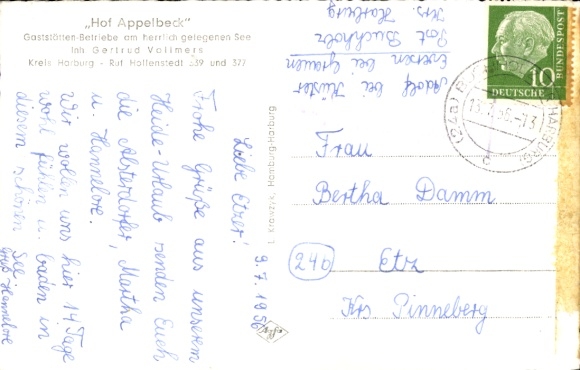 „Hof Appelbeck"
Gaststätten-Betriebe am herrlich gelegenen See
Inh. Gertrud Vollmers
Kreis Harburg - Ruf Hollenstedt 239 und 377
9.7.1956
Liebe Etzer!
Frohe Grüße aus unserem
Heide-Urlaub senden Euch
die Alsterdorfer, Martha
u. Hannelore.
Wir wollen uns hier 14 Tage
wohl fühlen u. baden in
diesem schönen See
Gruß Hannelore
Adolf bei Küster
Eversen bei Grauen
Post Buchholz
Krs. Harburg
I. Krawczik, Hamburg-Harburg
Agfa
DEUTSCHE
BUNDESPOST
10
(24a) BUCHHOLZ (HARBURG)
c
Frau
Bertha Damm
24b Etz
Krs Pinneberg